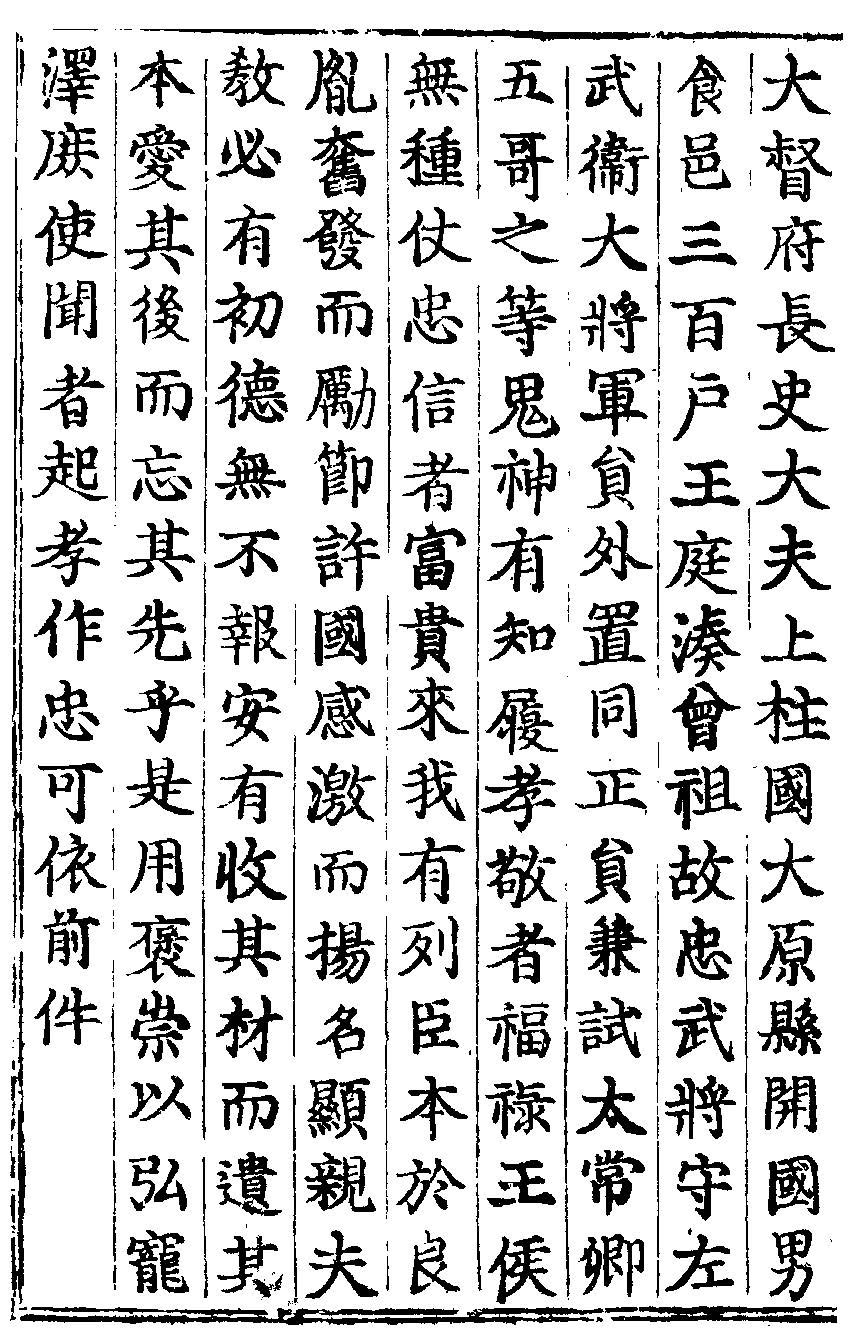 大督府長史大夫上柱國大原縣開國男
食邑三百戶王庭湊曾祖故忠武將守左
武衛大將軍貟外置同正貟兼試太常卿
五哥之等鬼神有知履孝敬者福祿王侯
無種仗忠信者富貴來我有列臣本於良
胤奮發而勵節許國感激而揚名顯親夫
教必有初德無不報安有收其材而遺其
本愛其後而忘其先乎是用褒崇以弘寵
澤庶使聞者起孝作忠可依前件